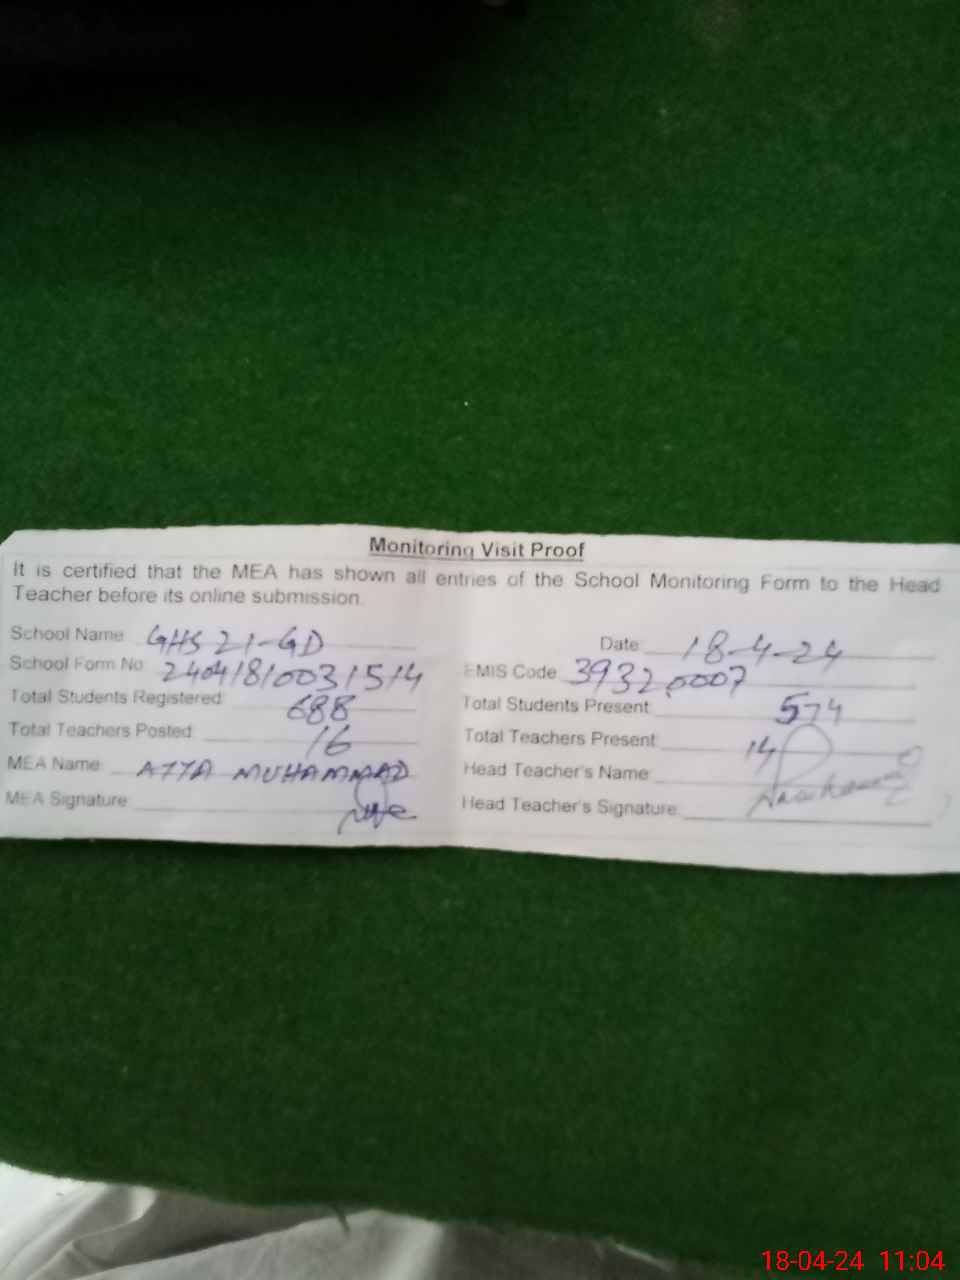 Monitoring Visit Proof
It is certified that the MEA has shown all entries of the School Monitoring Form to the Head
Teacher before its online submission.
School Name: GHS 21-GD Date: 18-4-24
School Form No: 24041810031514 EMIS Code: 39320007
Total Students Registered: 688 Total Students Present: 574
Total Teachers Posted: 16 Total Teachers Present: 14
MEA Name: ATTA MUHAMMAD Head Teacher's Name:
MEA Signature: Head Teacher's Signature:
18-04-24 11:04